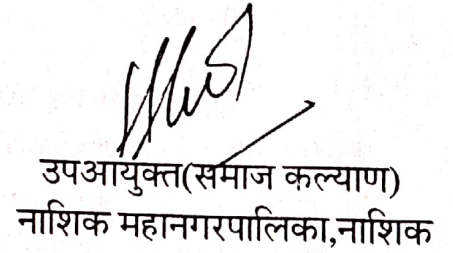 उपआयुक्त(समाज कल्याण)
नाशिक महानगरपालिका,नाशिक